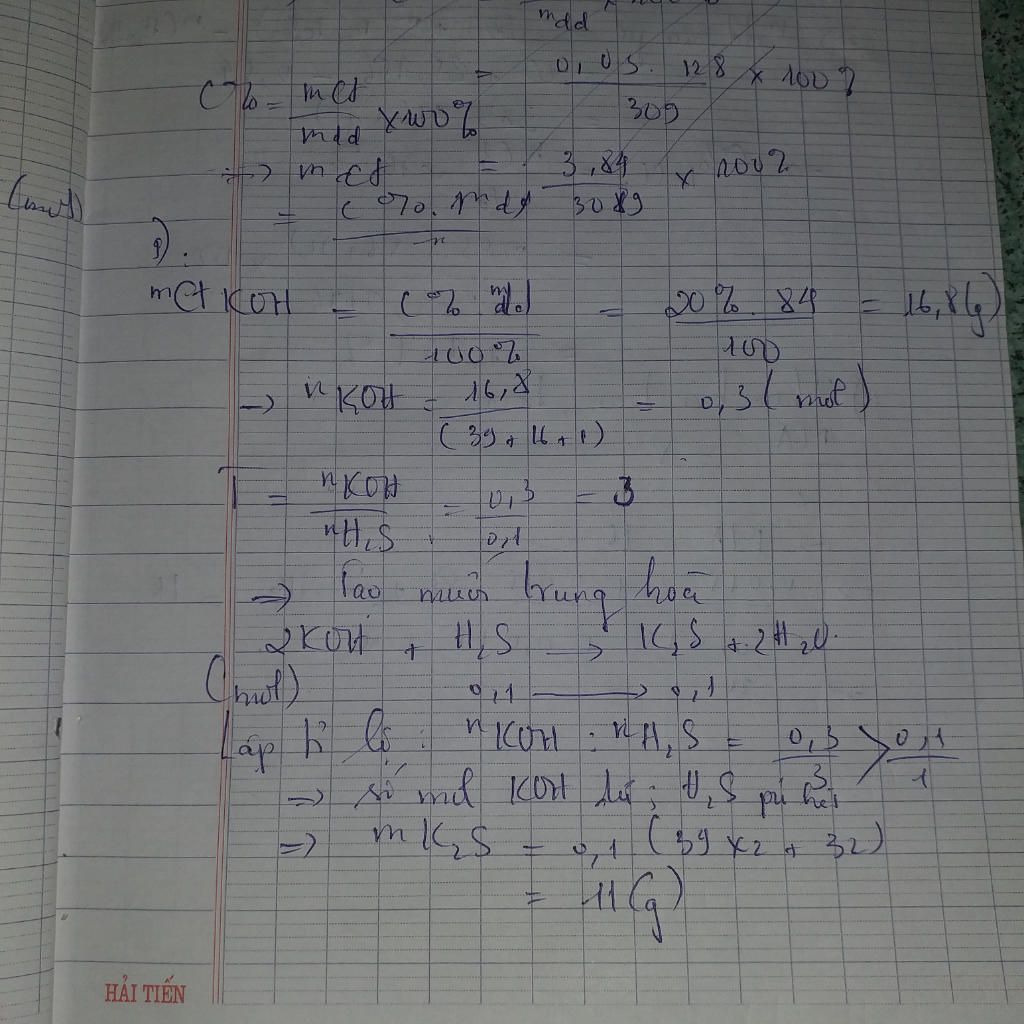 mdd
C% = mct / mdd × 100% = 0,03. 128 / 309 × 100%
=> mct = 3,84 / 3089 × 100%
= C%. mdd
(mol)
mct KOH = C% mdd / 100% = 20%. 84 / 100 = 16,8 (g)
-> nKOH = 16,8 / (39 + 16 + 1) = 0,3 (mol)
T = nKOH / nH₂S = 0,3 / 0,1 = 3
=> Tạo muối trung hoà
2KOH + H₂S -> K₂S + 2H₂O.
(mol) 0,1 -> 0,1
Lập tỉ lệ: nKOH : nH₂S = 0,3 / 3 > 0,1 / 1
=> số mol KOH dư; H₂S pứ hết
=> mK₂S = 0,1 (39 x 2 + 32)
= 11 (g)
HẢI TIẾN